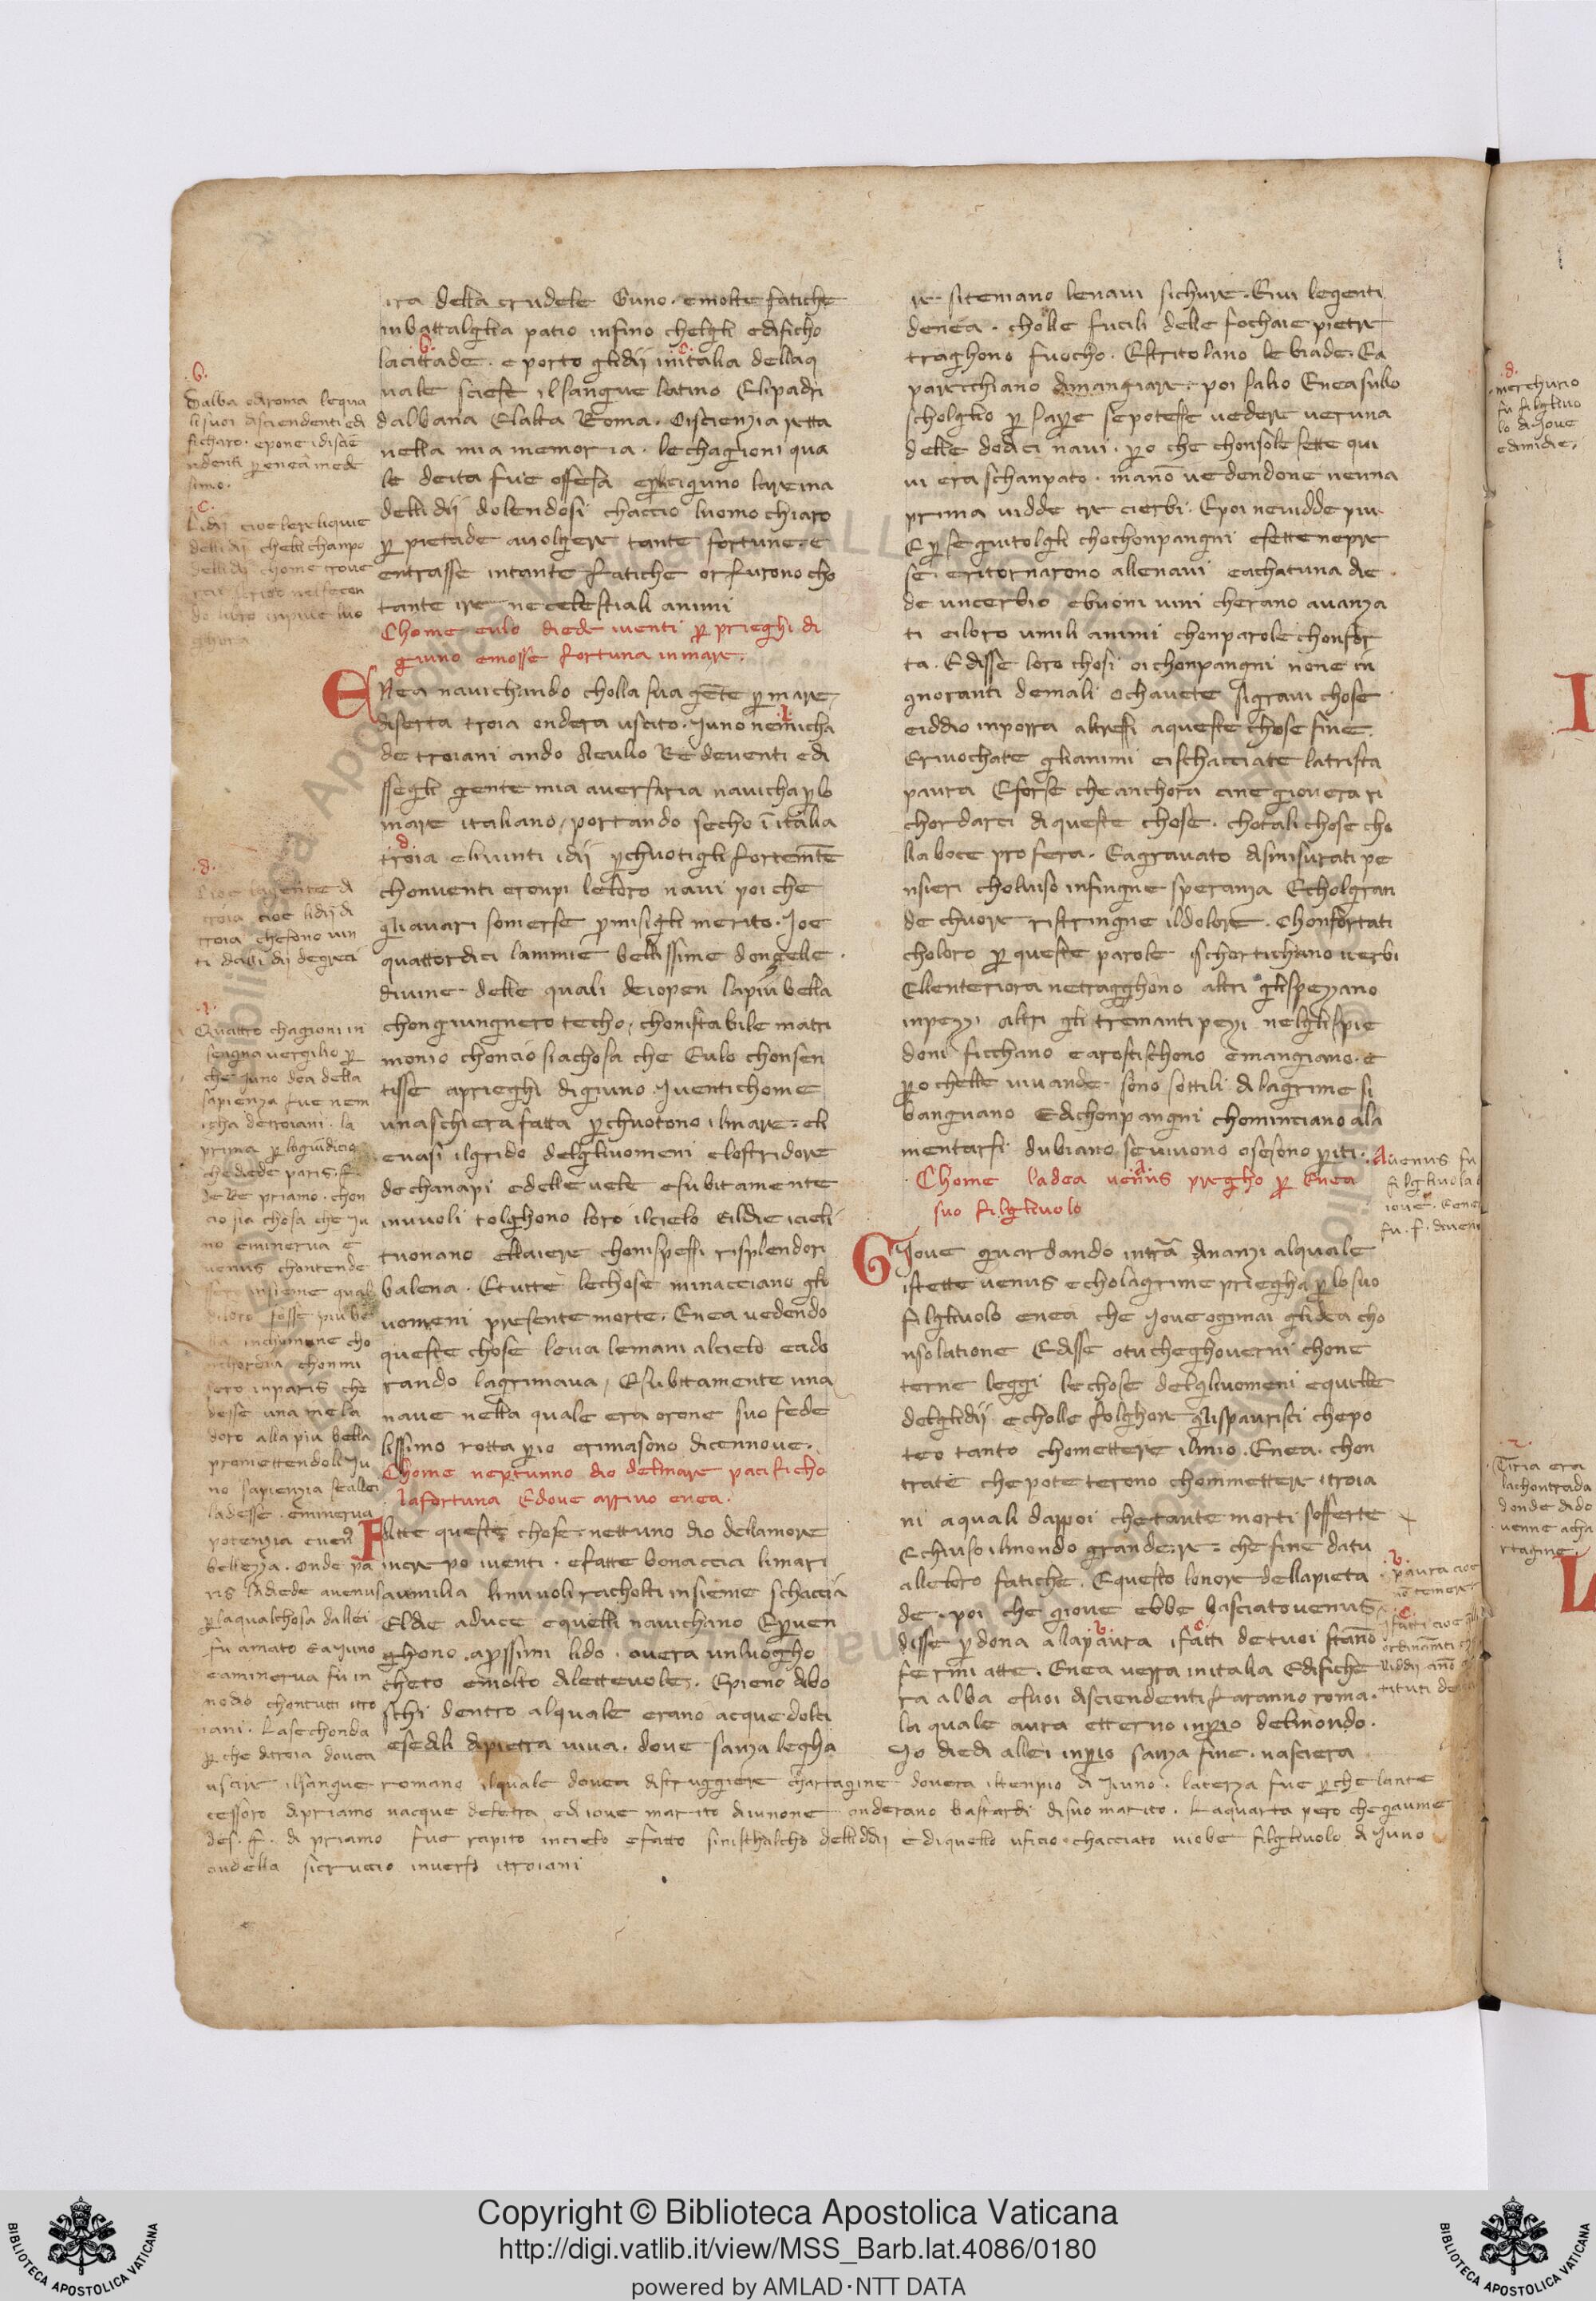 ira della crudele Guno. emolte fatiche
inbattalglia patio infino chelgli edificho
lacittade. e porto glidij initalia dellaq
uale sciese ilsangue latino Elipadri
dalbana Elalta Roma. Oiscienzia retta
nella mia memoria. le chagioni qua
le deita fue offesa lareina
delli dij dolendosi chaccio luomo chiaro
p pietade auolgere tante fortune. e
entrasse intante fatiche or furono cho
tante ire ne celestiali animi
Chome eulo diede iventi p prieghi di
giuno emosse fortuna inmare.
ENea navichando cholla sua gente p mare
diserta troia ondera uscito. Juno nemicha
de troiani ando Aeulio Re deventi edi
ssegli gente mia aversaria navicha plo
mare italiano, portando secho i italia
troia elivinti idij pchuotigli fortemte
chonventi eronpi leloro navi poi che
gliavari somerse pmisigli merito. Ioe
quattordici lammie bellissime donzelle.
divine delle quali deiopea lapiu bella
chongiungnero techo, chonistabile matri
monio choncio siachosa che Eulo chonsen
tisse aprieghi digiuno. Iventi chome
unaschiera fatta pchuotono ilmare. eli
evasi ilgrido delgliuomeni elostridore
dechanapi edelle vele esubitamente
invuoli tolghono loro ilcielo eildie icieli
tuonano ellaiere chonispessi risplendori
balena. Etutte lechose minacciano gli
uomeni presente morte. Enea vedendo
queste chose leva lemani alcielo eado
rando lagrimava, Esubitamente una
nave nella quale era orone suo fede
lissimo rotta pio erimasono dicennove.
Chome neptunno dio delmare pacificho
lafortuna Edove arrivo enea.
Fatte queste chose. nettuno dio dellamore
increpo iventi. efatte bonaccia limari
aumilia linuvoli racholti insieme schaccia
Eldie aduce equelli navichano Epven
ghono. apssimi lido. overa unluogho
cheto emolto dilettevole. Epieno dibo
schi dentro alquale erano acque dolci
esedili dipietra viva. dove sanza legha
re sitemano lenavi sichure. Eivi legenti
denea. cholle fucili delle fochaie pietre
traghono fuocho. Estritolano le biade. Ea
parecchiano damangiare. poi salio Enea sullo
scholglio p sape sepotesse vedere veruna
delle dodici navi. po che chonsole sette qui
vi era schanpato. mano vedendone neuna
prima vidde tre cierbi. Epoi nevidde piu
Epseguitolgli chochonpangni esettenepre
se. eritornarono allenavi eachatuna die
de uncerbio ebuoni vini cherano avanza
ti eiloro umili animi chonparole chonfor
ta. Edisse loro chosi oi chonpangni none in
gnoranti demali ochavete sigravi chose
eiddio inporra altressi aqueste chose fine.
Erivochate glianimi eischacciate latrista
paura Eforse cheanchora cine giovera ri
chordarci diqueste chose. chotali chose cho
llaboce profera. Eagravato dismisurati pe
nsieri cholviso infingne speranza Echolgran
de chuore ristringne ildolore. Chonfortati
choloro p queste parole ischortichano icerbi
Ellenteriora netragghono altri glispezano
inpezzi altri gli tremanti pezzi nelglispie
doni ficchano earostischono emangiano. e
po chelle vivande sono sottili dilagrime si
bangnano Edichonpangni chominciano ala
mentarsi dubiano sevivono osesono piti.
Chome ladea venus pregho p Enea
suo filgliuolo
GIove guardando intra dinanzi alquale
istette venus echolagrime priegha plosuo
filgliuolo enea che Iove ogimai glidea cho
nsolatione Edisse otu cheghoverni chone
terne leggi lechose delgliuomeni equelle
delglidij echolle folghore glispauristi chepo
teo tanto chomettere ilmio. Enea. chon
trate che poteterono chommettere itroia
ni aquali dappoi chetante morti sofferte
Echiuso ilmondo grande.re. che fine datu
alleloro fatiche. Equesto lonore dellapieta
de. poi che giove ebbe lasciato venus
disse pdona alapaura ifatti detuoi stano
fermi atte. Enea verra initalia Edifiche
ra alba esuoi disciendenti faranno roma.
la quale aura etterno inpio delmondo.
Io diedi allei inpio sanza fine. nasciera
.b.
Dalba edaroma lequa
lisuoi disciendenti edi
ficharo. epone idiscie
ndenti p enea mede
simo.
.c.
Lidij cioe lerelique
delli dij
.d.
Cioe lagente di
troia cioe lidij di
troia chesono vin
ti dalli dij degreci
Quattro chagioni in
sengna vergilio p
che Juno dea della
sapienza fue nem
icha detroiani. la
prima p logiudicio
che diede paris. f.
de Re priamo. chon
cio sia chosa che Ju
no eminerva e
venus chontende
ssero insieme qual
diloro fosse piu be
lla
sero inparis che
desse una mela
doro alla piu bella
promettendoli Ju
no sapienza seallei
ladesse. eminerva
potenzia even9
bellezza. onde pa
ris ladiede avenus
plaqualchosa dallei
fu amato eaJuno
eaminerva fu in
nodio chontutti itro
iani. Lasechonda
p che ditroia dovea
uscire ilsangue romano ilquale dovea distruggiere chartagine dovera iltenpio di Juno. laterza fue pche lante
cessoro dipriamo nacque deletra ediiove marito diiunone onderano bastardi disuo marito. Laquarta pero chegaume
des. f. di priamo fue rapito incielo efatto sinischalcho delliddij edi quello uficio. chacciato niobe filgliuolo di Juno
ondella sicruccio inverso itroiani
Avenus fu
filgliuola
iove. Eenea
fu. f. diveni
.b.
paura cioe
no temere
.c.
.d.
merchurio
fu filgliuo
lo di Jove
edimaie.
Tiria era
lachontrada
donde dido
venne acha
rtagine.
Copyright © Biblioteca Apostolica Vaticana
http://digi.vatlib.it/view/MSS_Barb.lat.4086/0180
powered by AMLAD·NTT DATA
BIBLIOTECA APOSTOLICA VATICANA
BIBLIOTECA APOSTOLICA VATICANA